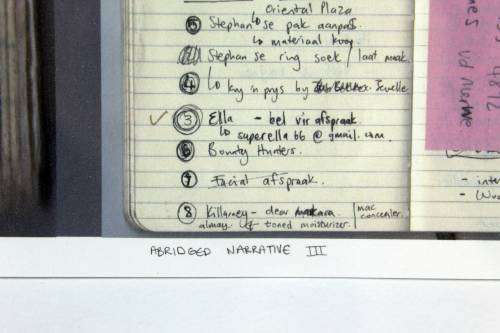 Oriental Plaza
⑤ Stephan se pak aanpas.
↳ materiaal koop
Stephan se ring soek / laat maak.
④ ↳ kry 'n prys by Jewelle
✓ ③ Ella - bel vir afspraak
↳ superella66@gmail.com.
⑥ Bounty Hunters.
⑦ Facial afspraak.
⑧ Killarney - clear mascara | mac
almay toned moisturizer. | concealer.
- inter
ABRIDGED NARRATIVE III